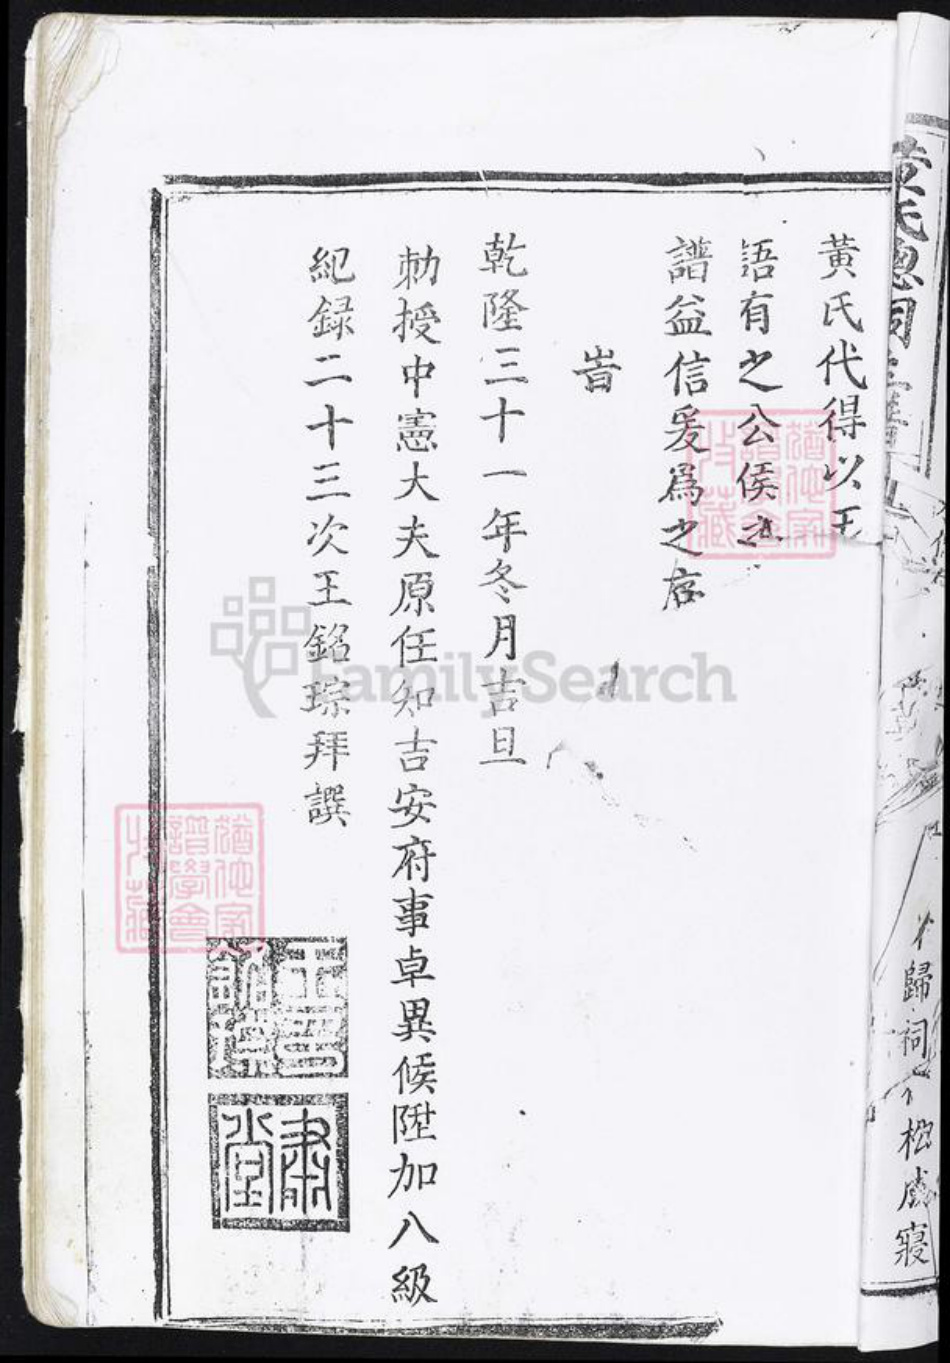 黃氏代得以王
語有之公侯之
譜益信爰爲之序
旹
乾隆三十一年冬月吉旦
勅授中憲大夫原任知吉安府事卓異候陞加八級
紀録二十三次王銘琮拜譔
肅堂
FamilySearch
歸祠
松成寢